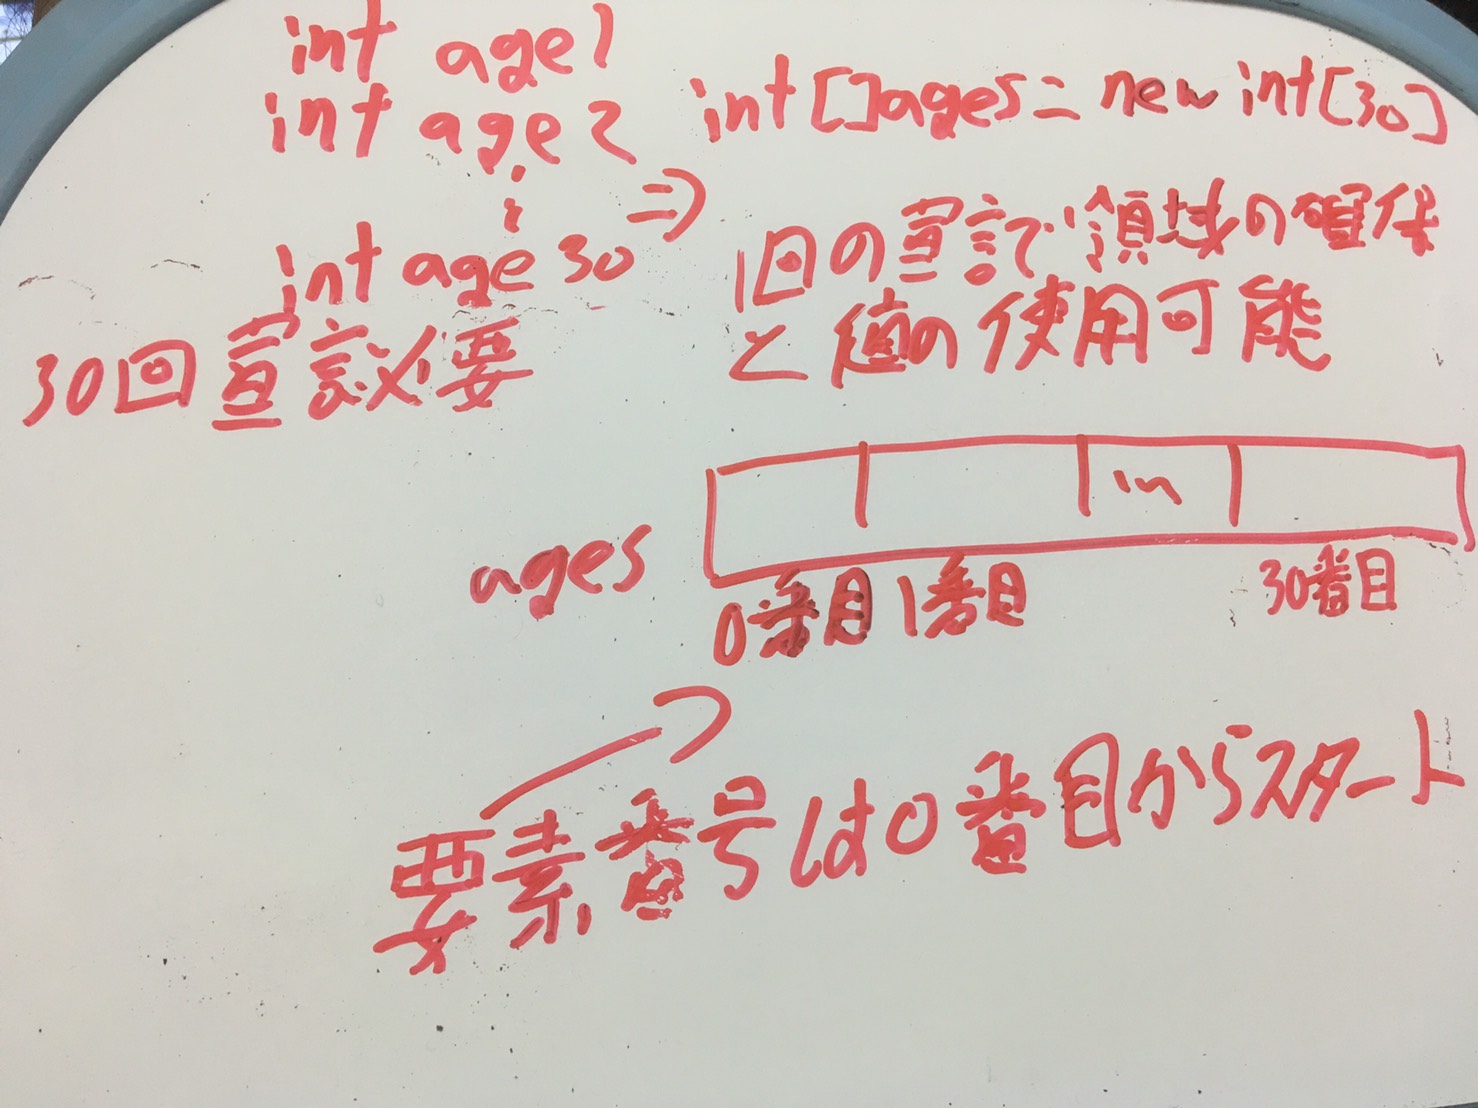 int age1
int age2
⋮
int age30
30回宣言必要
⇒
int[]ages = new int[30]
1回の宣言で領域の確保
と値の使用可能
ages
0番目 1番目 30番目
要素番号は0番目からスタート